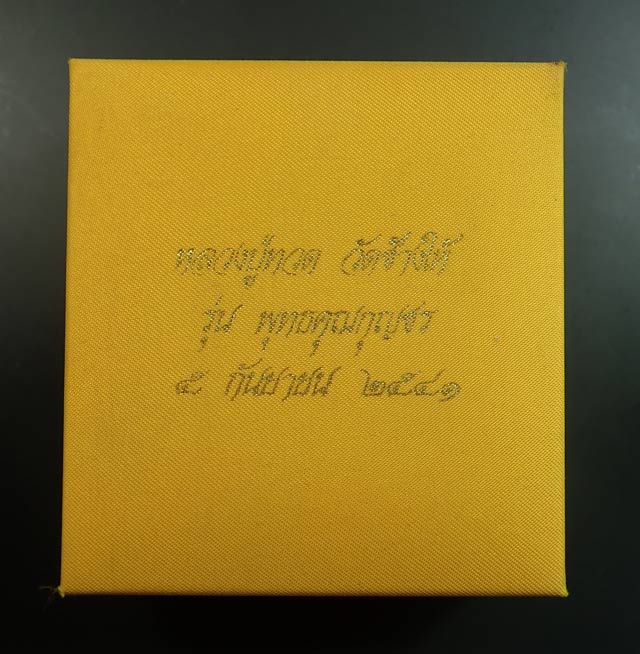 หลวงปู่ทวด วัดช้างให้
รุ่น พุทธคุณกุญชร
๕ กันยายน ๒๕๔๑